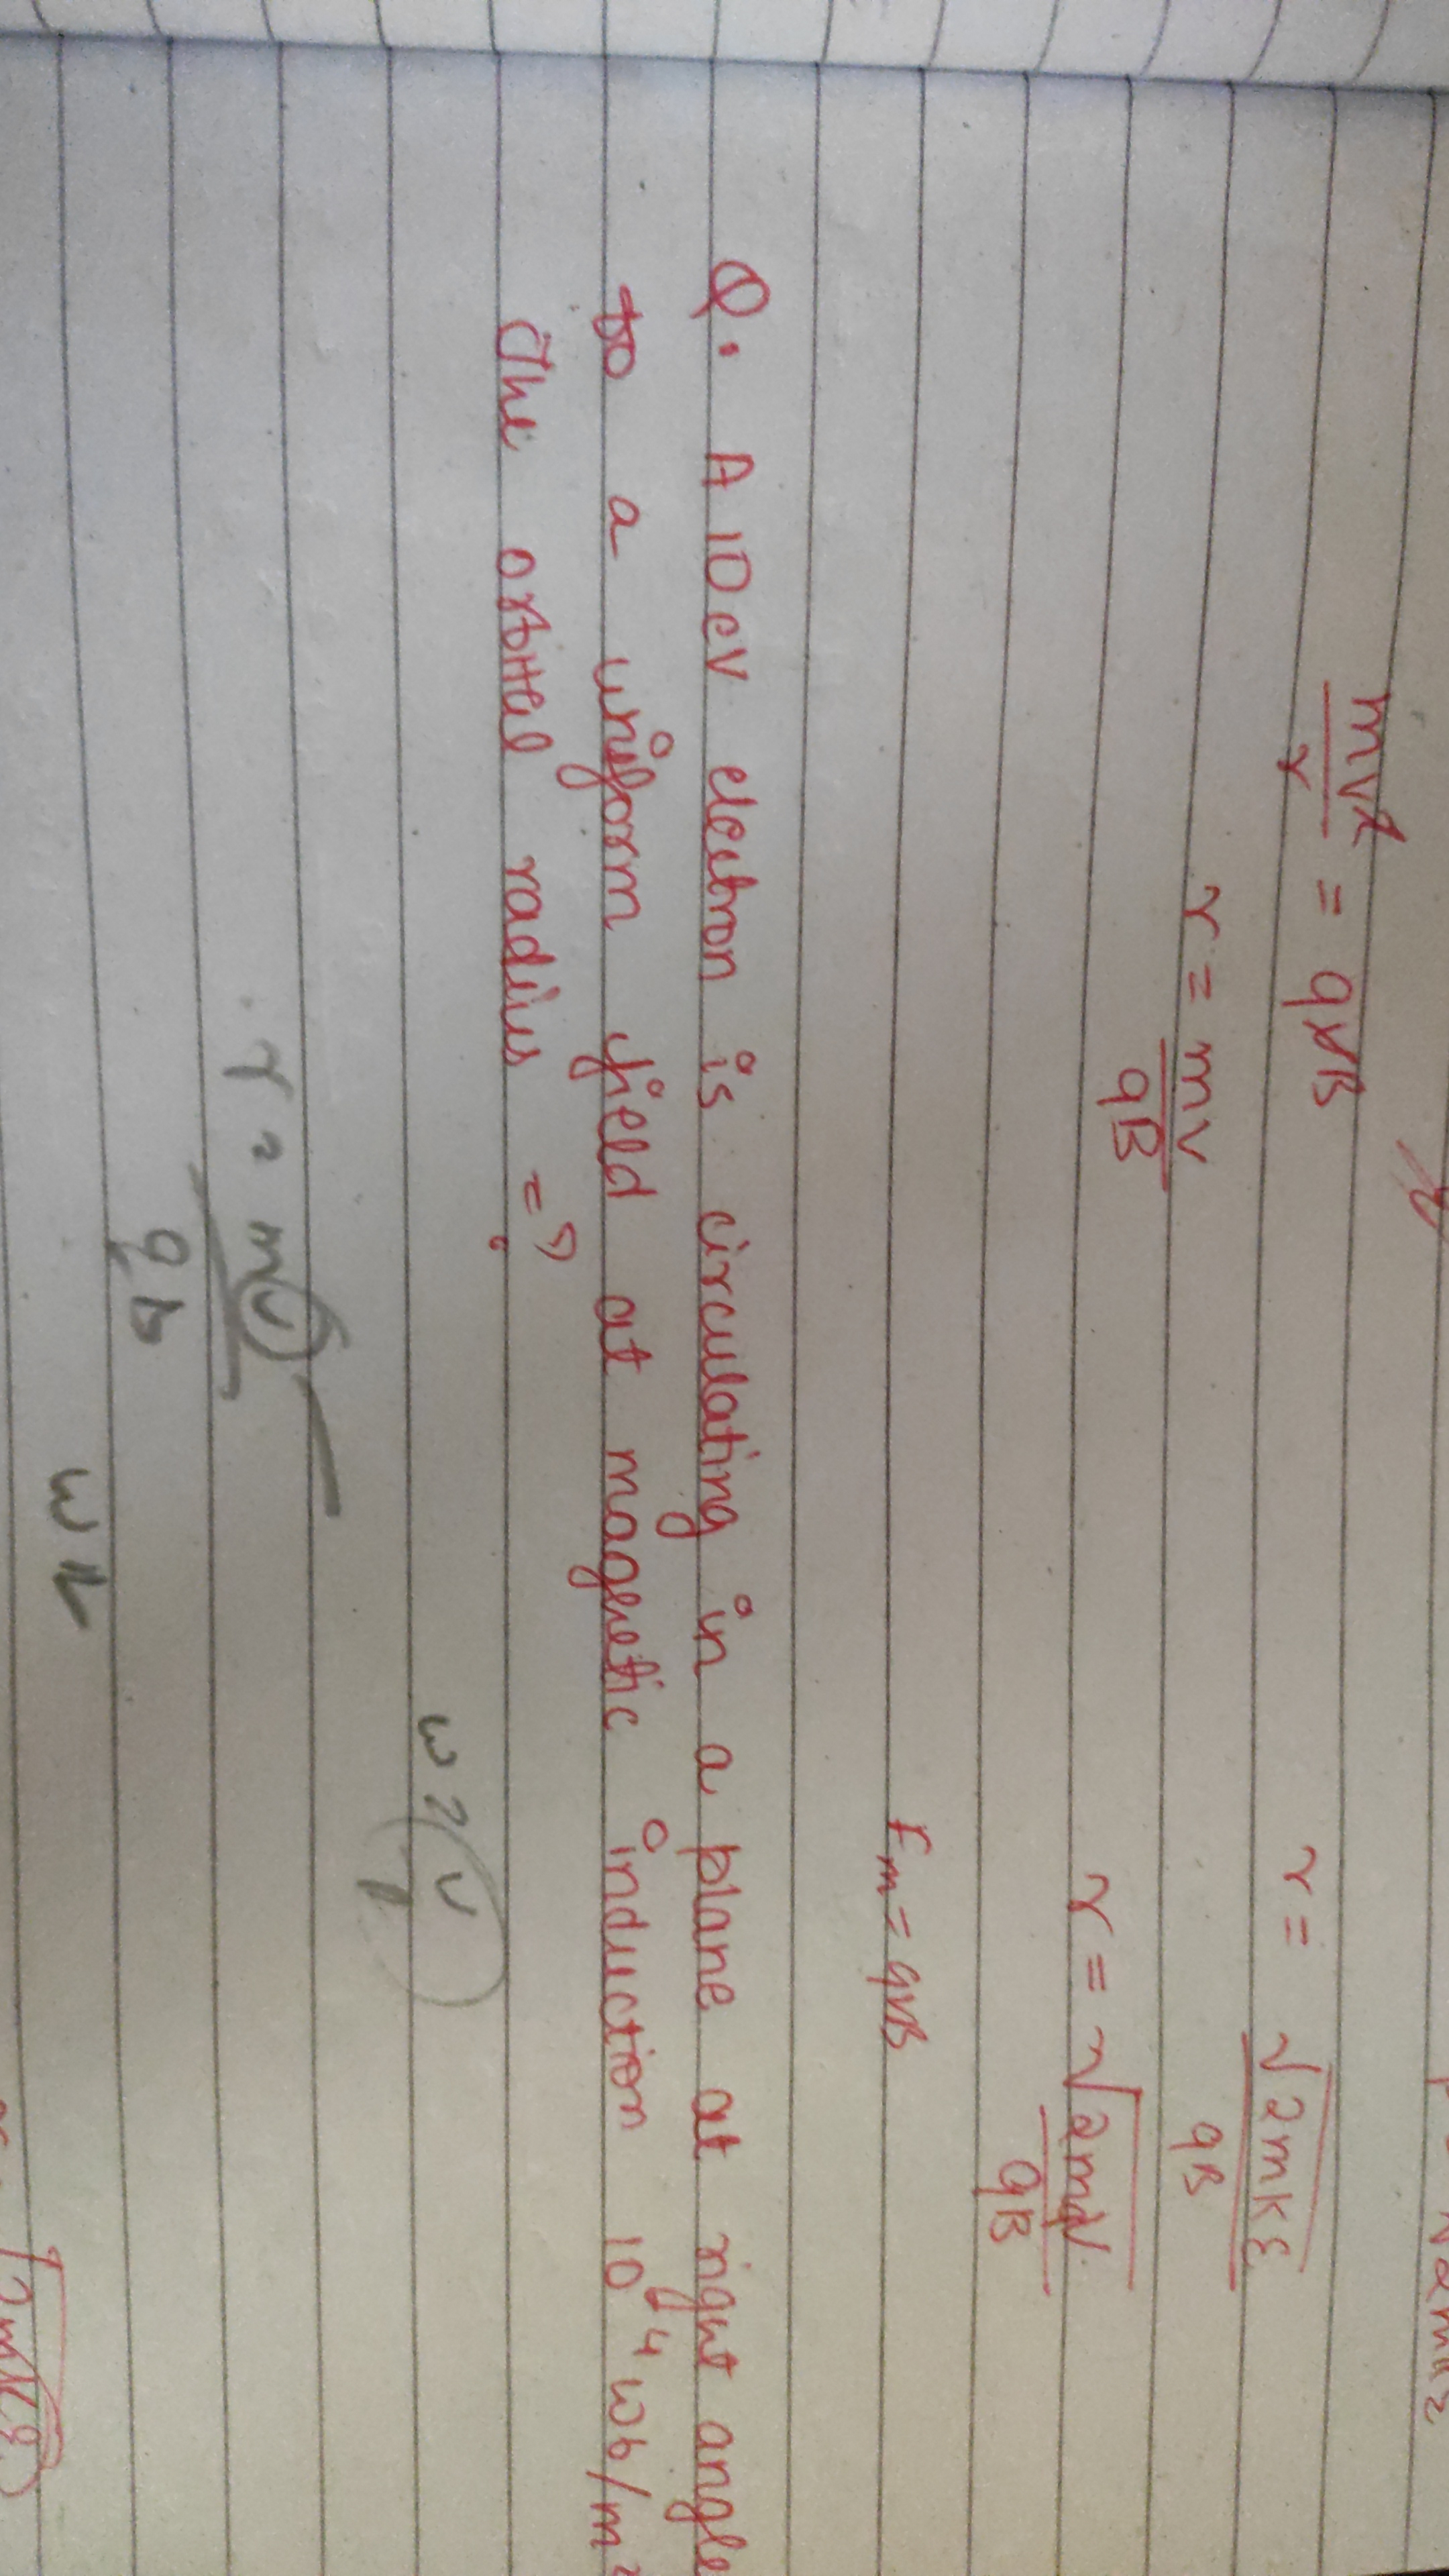 mv² / r = qvB
r = mv / qB
r = √2mKE / qB
r = √2mqV / qB
Fm = qvB
Q. A 10 eV electron is circulating in a plane at right angle
to a uniform field at magenetic induction 10⁻⁴ wb/m²
The orbital radius = ?
ω = v / r
r = mv / qB